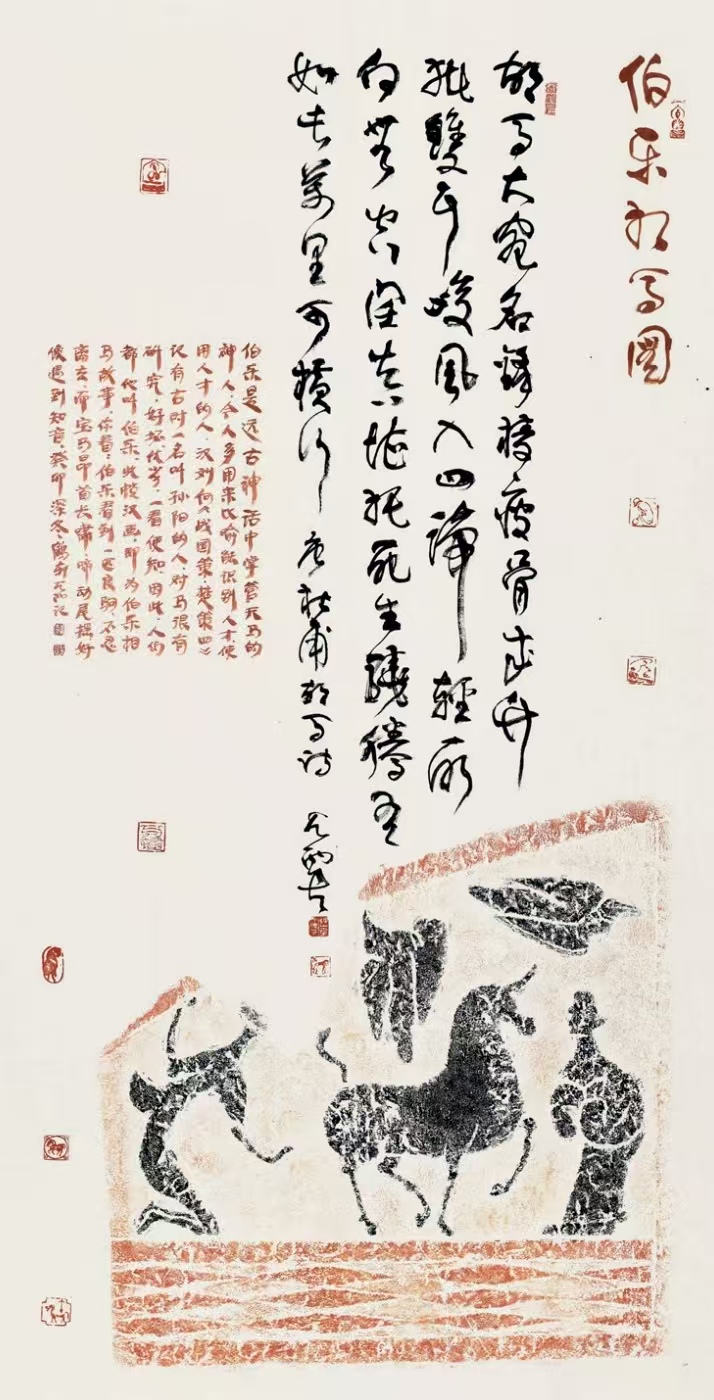 伯乐相马圖
胡马大宛名鋒稜瘦骨成竹
批雙耳峻風入四蹄輕所
向無空闊真堪托死生驍騰有
如此萬里可橫行 唐杜甫胡马诗
伯乐是远古神话中掌管天马的
神人，今人多用来比喻能识别人才、使
用人才的人，汉刘向《战国策·楚策四》
记有古时一名叫孙阳的人，对马很有
研究，好坏优劣，一看便知，因此，人们
都他叫伯乐，此帧汉画，即为伯乐相
马故事，你看，伯乐看到一匹良驹，不忍
离去，而宝马昂首长啸，蹄动尾摇，好
像遇到知音。癸卯深冬